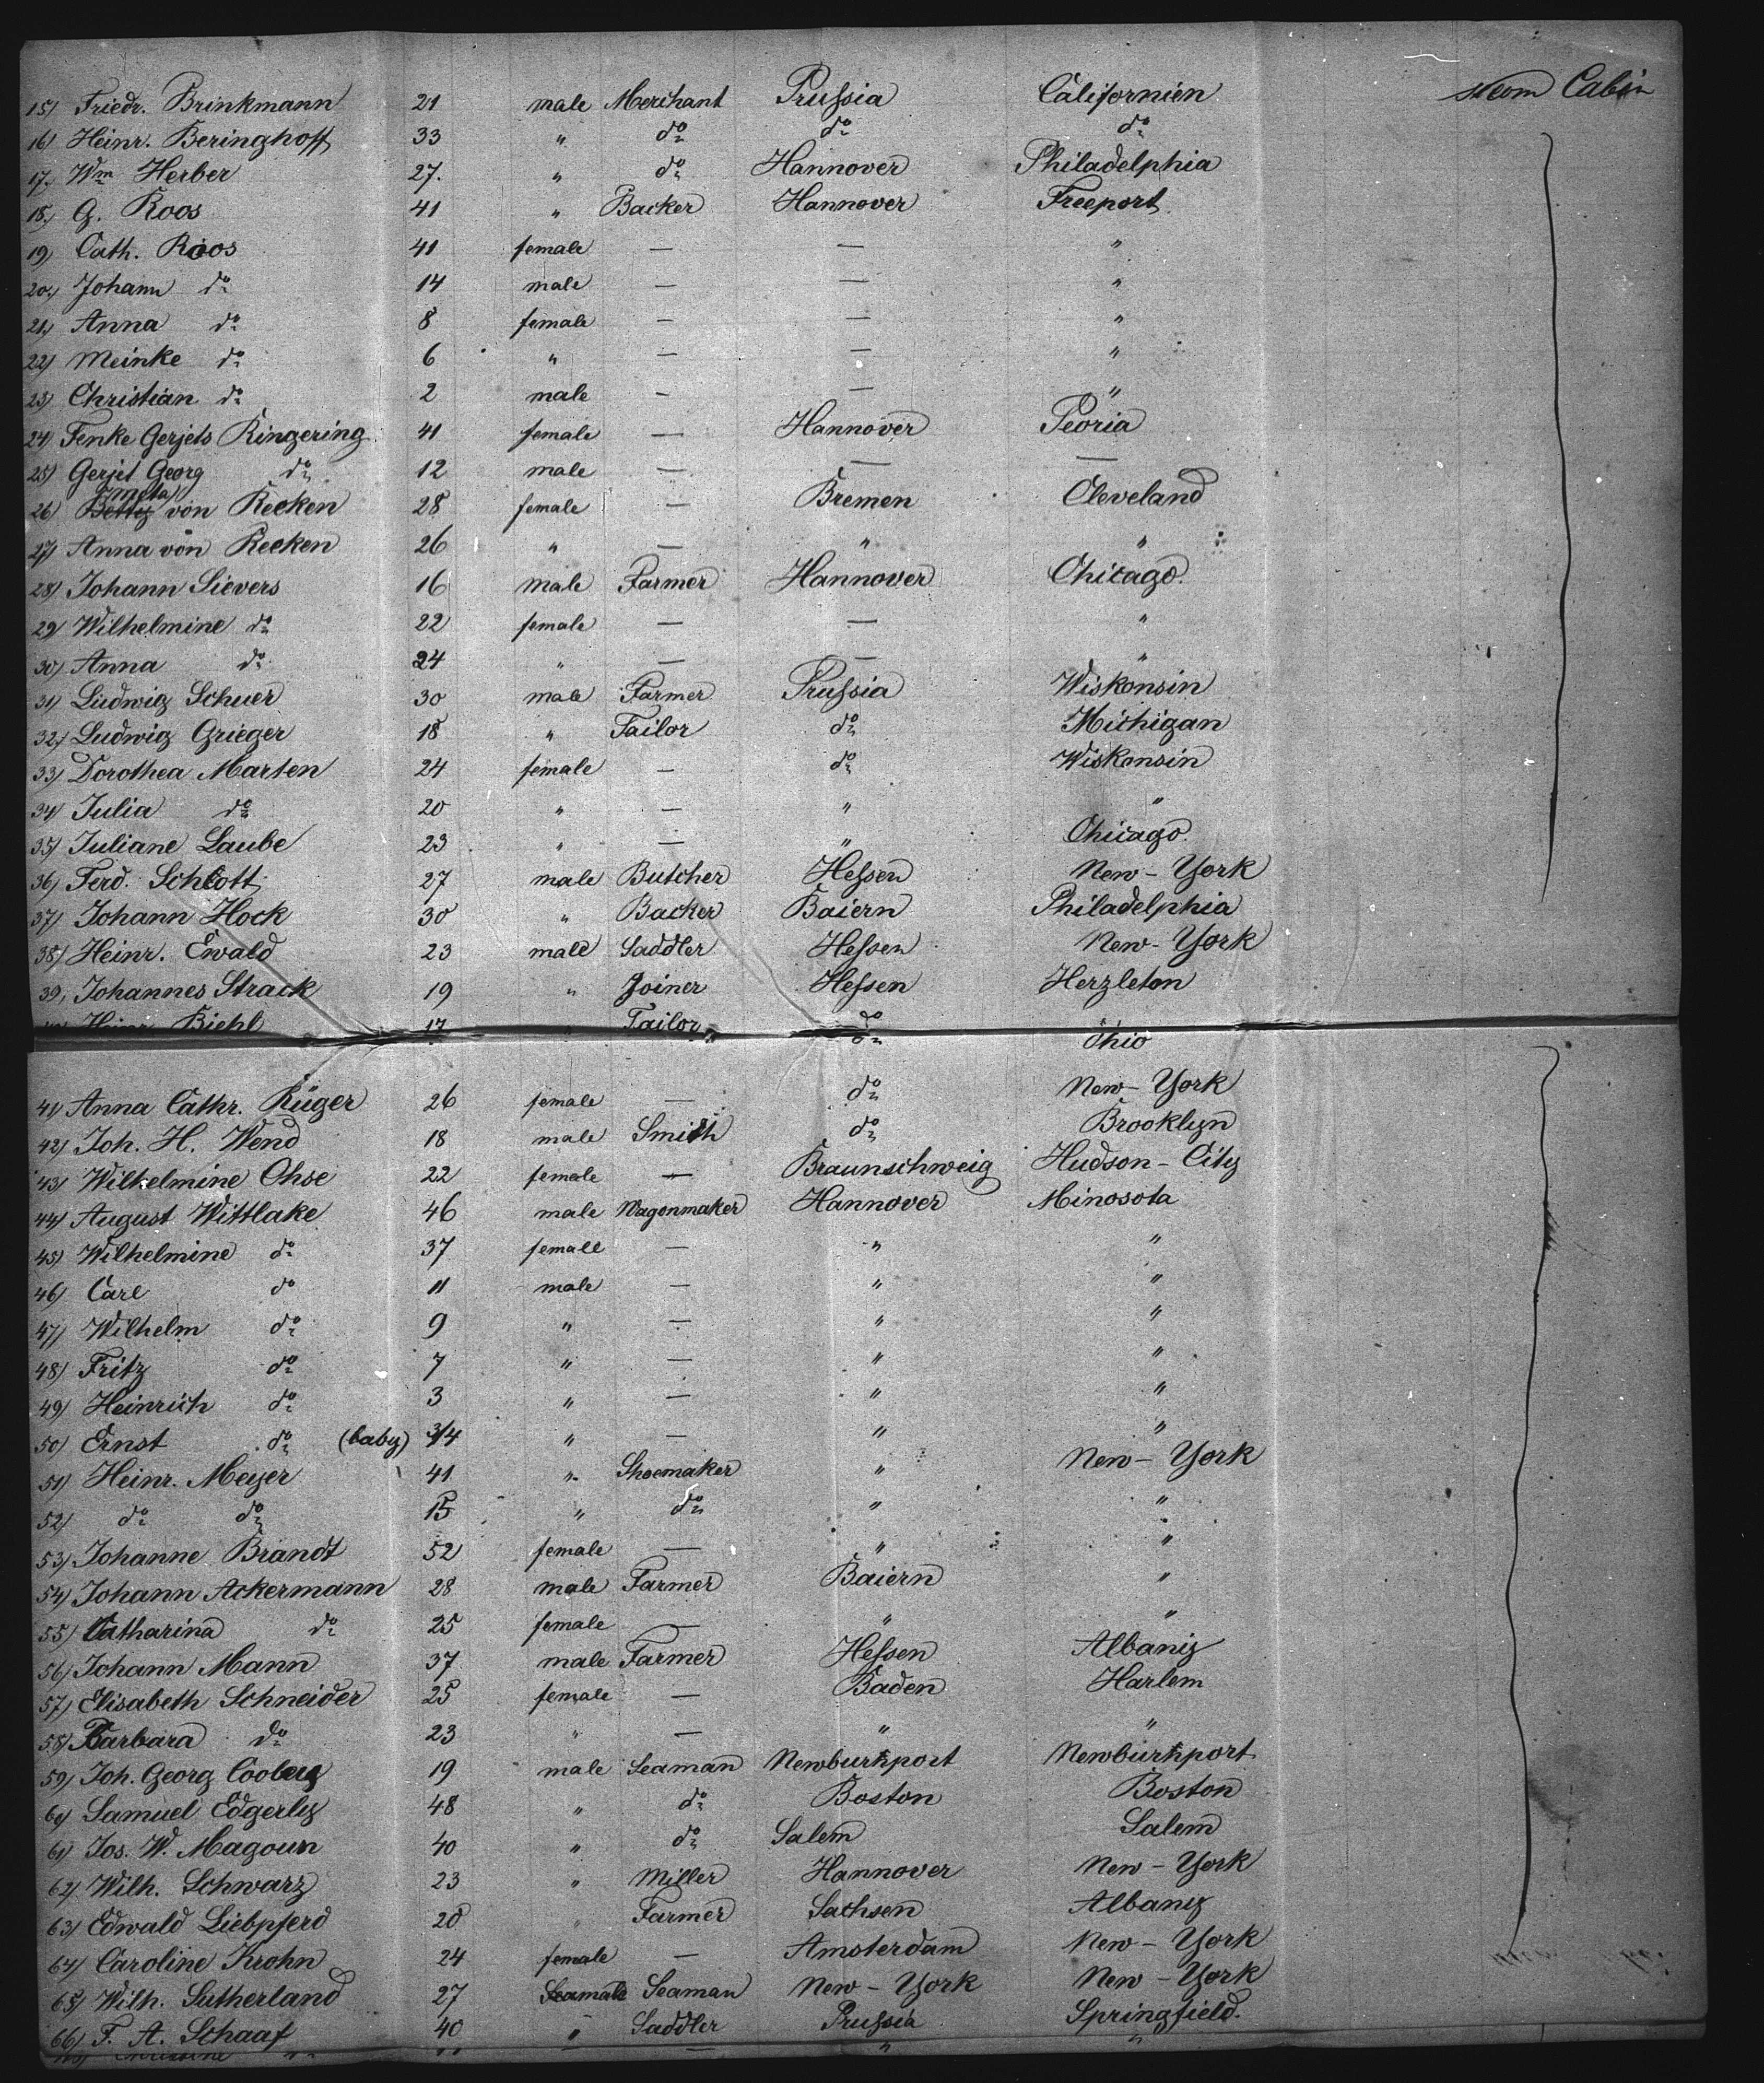 15) Friedr. Brinkmann 21 male Merchant Prussia Californien steam Cabin
16) Heinr. Beringhoff 33 " do do do
17) Wm Herber 27. " do Hannover Philadelphia
18) G. Roos 41 " Backer Hannover Freeport
19) Cath. Roos 41 female — — "
20) Johann do 14 male — — "
21) Anna do 8 female — — "
22) Meinke do 6 " — — "
23) Christian do 2 male — — "
24) Fenke Gerjets Ringering 41 female — Hannover Peoria
25) Gerjet Georg do 12 male — — —
26) Betty (meta) von Reeken 28 female — Bremen Cleveland
27) Anna von Reeken 26 " — " "
28) Johann Sievers 16 male Farmer Hannover Chicago.
29) Wilhelmine do 22 female — — "
30) Anna do 24 " — — "
31) Ludwig Schuer 30 male Farmer Prussia Wiskonsin
32) Ludwig Grieger 18 " Tailor do Michigan
33) Dorothea Marten 24 female — do Wiskonsin
34) Julia do 20 " — " "
35) Juliane Laube 23 " — " Chicago.
36) Ferd. Schlott 27 male Butcher Hessen New-York
37) Johann Hock 30 " Backer Baiern Philadelphia
38) Heinr. Ewald 23 male Saddler Hessen New-York
39) Johannes Strack 19 " Joiner Hessen Herzleton
Heinr. Biehl 17 Tailor do Ohio
41) Anna Cathr. Rüger 26 female — do New-York
42) Joh. H. Wend 18 male Smith do Brooklyn
43) Wilhelmine Ohse 22 female — Braunschweig Hudson-City
44) August Wittlake 46 male Wagonmaker Hannover Minosota
45) Wilhelmine do 37 female — " "
46) Carl do 11 male — " "
47) Wilhelm do 9 " — " "
48) Fritz do 7 " — " "
49) Heinrich do 3 " — " "
50) Ernst do (baby) 3/4 " — " "
51) Heinr. Meyer 41 " Shoemaker " New-York
52) do do 15 " do " "
53) Johanne Brandt 52 female — " "
54) Johann Ackermann 28 male Farmer Baiern "
55) Catharina do 25 female — " "
56) Johann Mann 37 male Farmer Hessen Albany
57) Elisabeth Schneider 25 female — Baden Harlem
58) Barbara do 23 " — " "
59) Joh. Georg Cooberg 19 male Seaman Newburhport Newburhport
60) Samuel Edgerly 48 " do Boston Boston
61) Jos. W. Magoun 40 " do Salem Salem
62) Wilh. Schwarz 23 " Miller Hannover New-York
63) Edwald Liebpferd 20 " Farmer Sachsen Albany
64) Caroline Krohn 24 female — Amsterdam New-York
65) Wilh. Sutherland 27 Seamale Seaman New-York New-York
66) F. A. Schaaf 40 " Saddler Prussia Springfield.